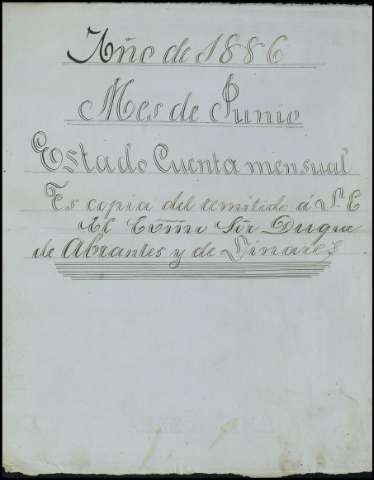 Año de 1886
Mes de Junio
Estado Cuenta mensual
Es copia del remitido á S. E
El Exmo Sor Duque
de Abrantes y de Linares